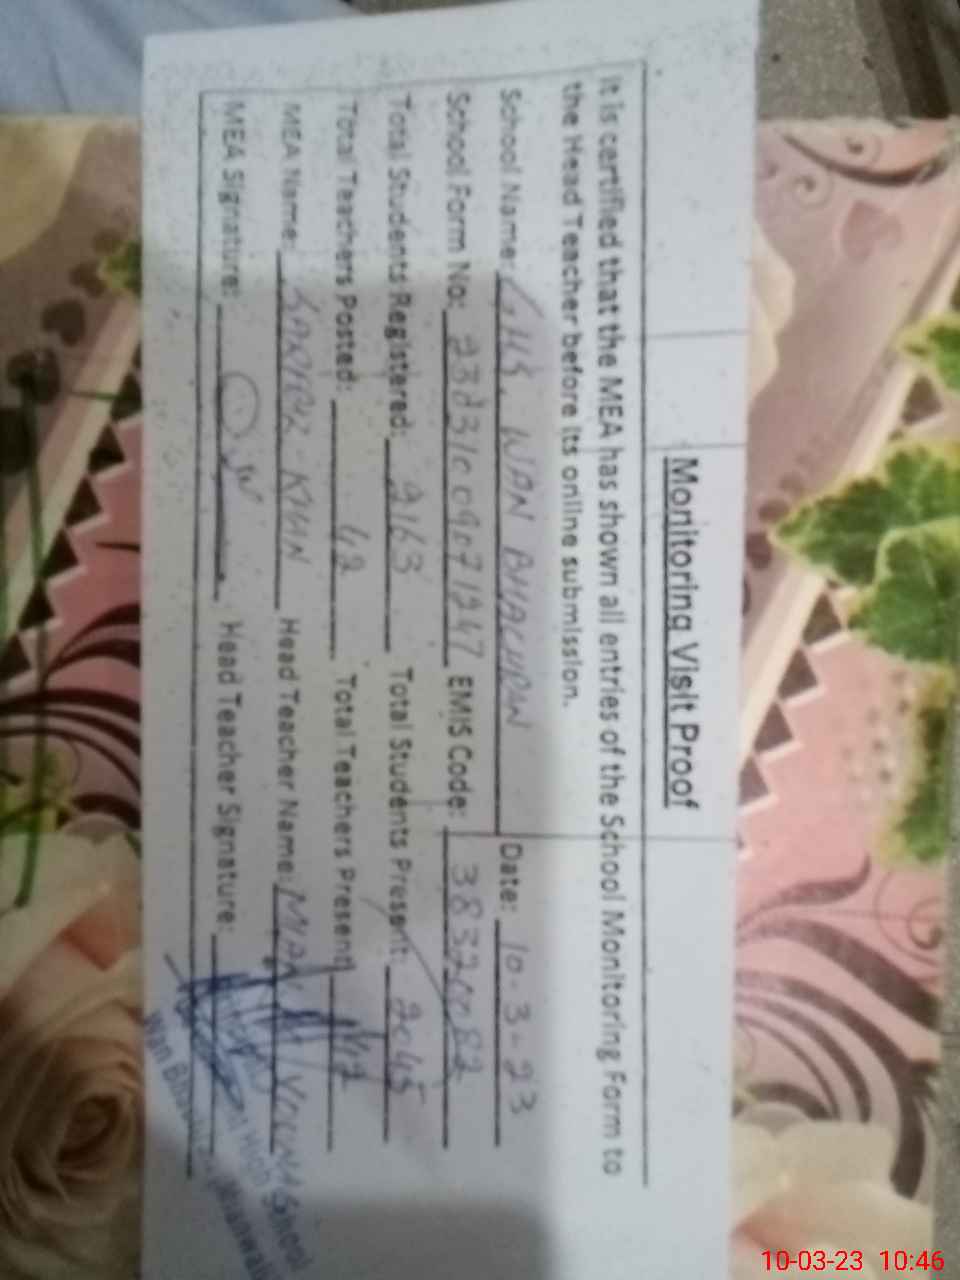 Monitoring Visit Proof
It is certified that the MEA has shown all entries of the School Monitoring Form to
the Head Teacher before its online submission.
School Name: GHS, WAN BHACHRAN Date: 10-3-23
School Form No: EMIS Code:
Total Students Registered: 2163 Total Students Present: 2045
Total Teachers Posted: 42 Total Teachers Present: 42
MEA Name: KHAN Head Teacher Name: MIAN
MEA Signature: Head Teacher Signature:
High School
Wan Mianwali
10-03-23 10:46